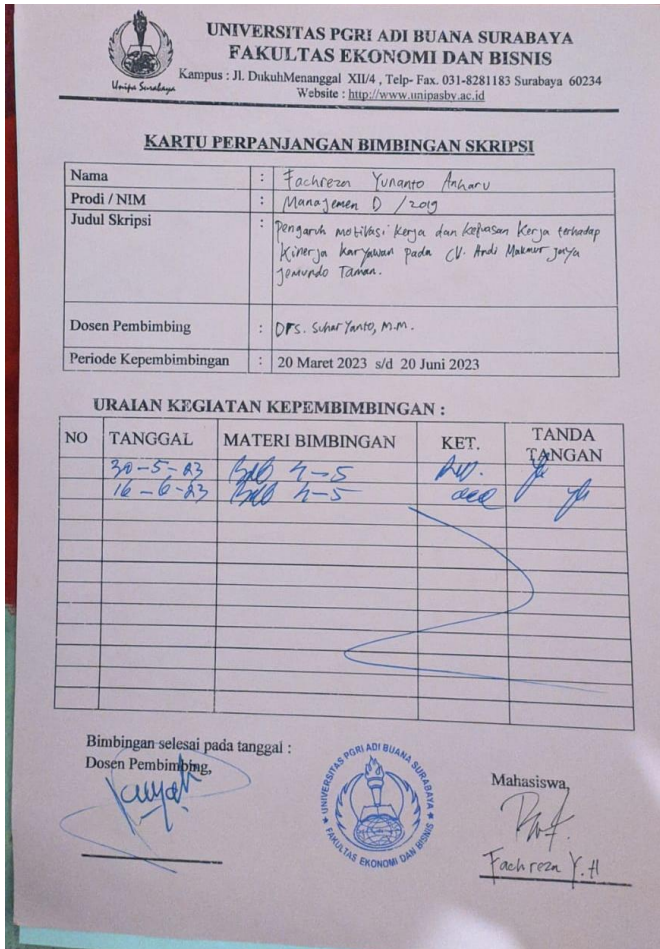 UNIVERSITAS PGRI ADI BUANA SURABAYA
FAKULTAS EKONOMI DAN BISNIS
Kampus : Jl. DukuhMenanggal XII/4 , Telp- Fax. 031-8281183 Surabaya 60234
Website : http://www.unipasby.ac.id
Unipa Surabaya
KARTU PERPANJANGAN BIMBINGAN SKRIPSI
Nama : Fachreza Yunanto Anharu
Prodi / NIM : Manajemen D / 2019
Judul Skripsi : Pengaruh motivasi Kerja dan kepuasan Kerja terhadap
Kinerja Karyawan pada CV. Andi Makmur Jaya
Jemundo Taman.
Dosen Pembimbing : Drs. Suharyanto, M.M.
Periode Kepembimbingan : 20 Maret 2023 s/d 20 Juni 2023
URAIAN KEGIATAN KEPEMBIMBINGAN :
NO TANGGAL MATERI BIMBINGAN KET. TANDA TANGAN
30-5-23 Bab 4-5 Rev.
16-6-23 Bab 4-5 acc
Bimbingan selesai pada tanggal :
Dosen Pembimbing,
UNIVERSITAS PGRI ADI BUANA SURABAYA
FAKULTAS EKONOMI DAN BISNIS
Mahasiswa,
Fachreza Y. A